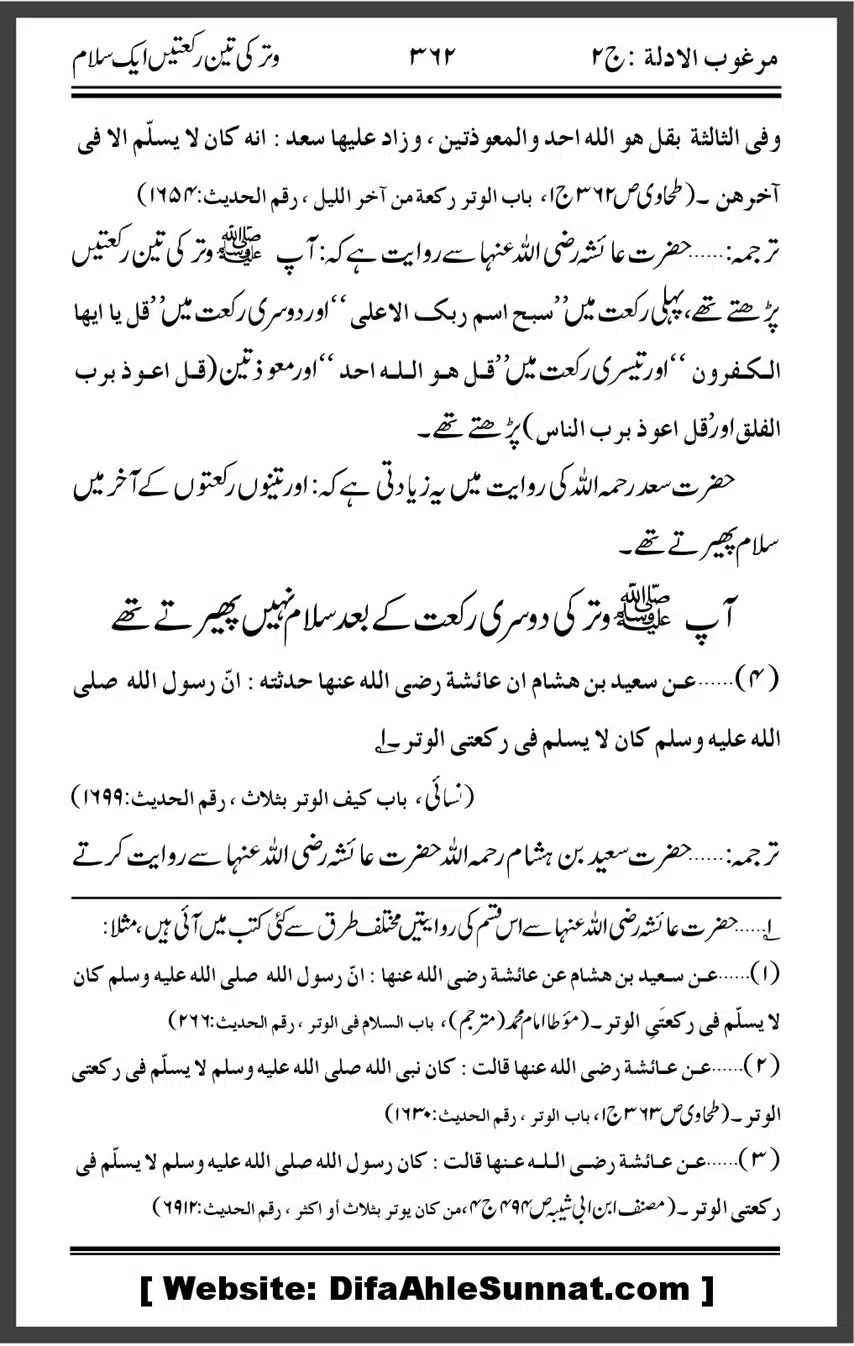 مرغوب الادلۃ :ج۲ ۳۶۲ وتر کی تین رکعتیں ایک سلام
وفی الثالثة بقل هو الله احد والمعوذتین ، وزاد علیها سعد : انه کان لا یسلّم الا فی
آخرهن ۔(طحاوی ص۳۶۲ج۱، باب الوتر رکعة من آخر اللیل ، رقم الحدیث:۱۶۵۴)
ترجمہ:......حضرت عائشہ رضی اللہ عنہا سے روایت ہے کہ: آپ ﷺ وتر کی تین رکعتیں
پڑھتے تھے، پہلی رکعت میں’’سبح اسم ربک الاعلی ‘‘اور دوسری رکعت میں’’قل یا ایها
الکفرون ‘‘اور تیسری رکعت میں’’قل هو الله احد ‘‘اور معوذتین(قل اعوذ برب
الفلق اور قل اعوذ برب الناس)پڑھتے تھے۔
حضرت سعد رحمہ اللہ کی روایت میں یہ زیادتی ہے کہ: اور تینوں رکعتوں کے آخر میں
سلام پھیرتے تھے۔
آپ ﷺ وتر کی دوسری رکعت کے بعد سلام نہیں پھیرتے تھے
(۴)......عن سعید بن هشام ان عائشة رضی الله عنها حدثته : انّ رسول الله صلی
الله علیه وسلم کان لا یسلم فی رکعتی الوتر ۔۱
(نسائی، باب کیف الوتر بثلاث ، رقم الحدیث:۱۶۹۹)
ترجمہ:......حضرت سعید بن ہشام رحمہ اللہ حضرت عائشہ رضی اللہ عنہا سے روایت کرتے
۱......حضرت عائشہ رضی اللہ عنہا سے اس قسم کی روایتیں مختلف طرق سے کئی کتب میں آئی ہیں، مثلا:
(۱)......عن سعید بن هشام عن عائشة رضی الله عنها : انّ رسول الله صلی الله علیه وسلم کان
لا یسلّم فی رکعتَیِ الوتر ۔(مؤطا امام محمد(مترجم)، باب السلام فی الوتر ، رقم الحدیث:۲۶۶)
(۲)......عن عائشة رضی الله عنها قالت : کان نبی الله صلی الله علیه وسلم لا یسلّم فی رکعتی
الوتر ۔(طحاوی ص۳۶۳ج۱، باب الوتر ، رقم الحدیث:۱۶۳۰)
(۳)......عن عائشة رضی الله عنها قالت : کان رسول الله صلی الله علیه وسلم لا یسلّم فی
رکعتی الوتر ۔(مصنف ابن ابی شیبہ ص۴۹۴ج۴،من کان یوتر بثلاث أو اکثر ، رقم الحدیث:۶۹۱۲)
[ Website: DifaAhleSunnat.com ]